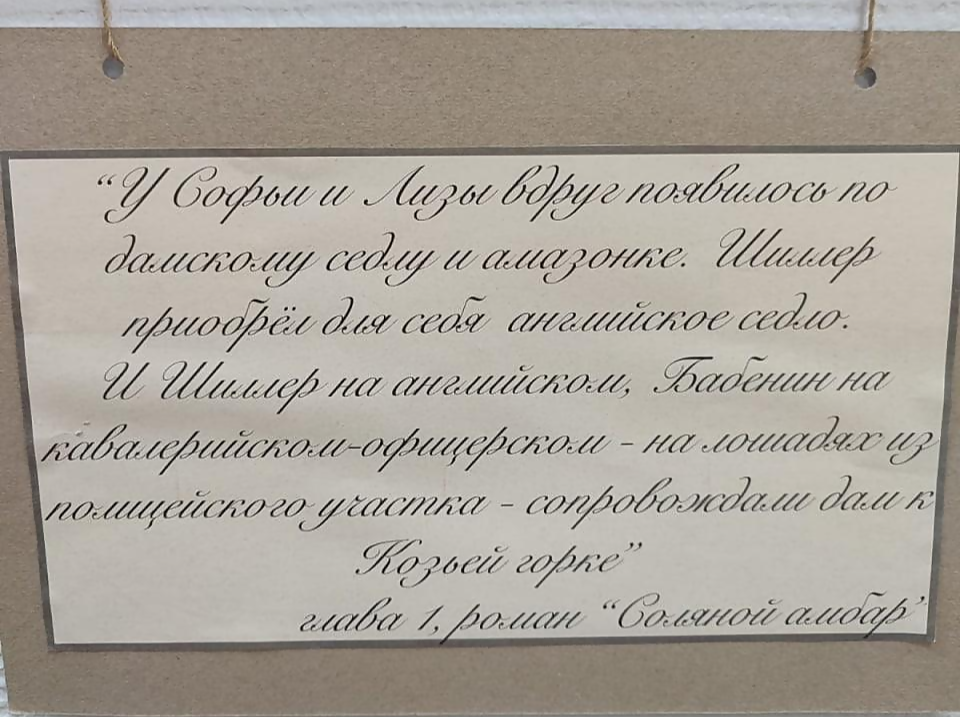 “У Софьи и Лизы вдруг появилось по
дамскому седлу и амазонке. Шиллер
приобрёл для себя английское седло.
И Шиллер на английском, Бабенин на
кавалерийском-офицерском - на лошадях из
полицейского участка - сопровождали дам к
Козьей горке”
глава 1, роман “Соляной амбар”